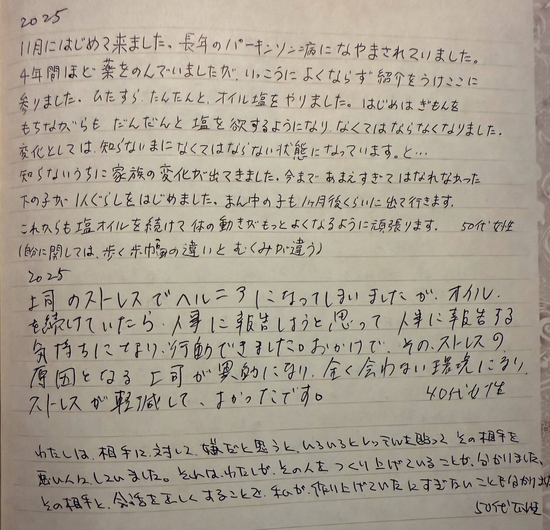 2025
11月にはじめて来ました、長年のパーキンソン病になやまされていました。
4年間ほど薬をのんでいましたが、いっこうによくならず紹介をうけここに
参りました。ひたすら、たんたんと、オイル塩をやりました。はじめはぎもんを
もちながらも だんだんと 塩を欲するようになり、なくてはならなくなりました。
変化としては、知らないまになくてはならない状態になっています。と…
知らないうちに家族の変化が出てきました。今まであまえすぎてはなれなかった
下の子が1人ぐらしをはじめました。まん中の子も1ヶ月後くらいに出て行きます。
これからも塩オイルを続けて体の動きがもっとよくなるように頑張ります。 50代女性
(自分に関しては、歩く歩幅の違いと むくみが違う)
2025
上司のストレスでヘルニアになってしまいましたが、オイル
を続けていたら、人事に報告しようと思って 人事に報告する
気持ちになり、行動できました。おかげで、その、ストレスの
原因となる上司が異動になり、全く会わない環境になり、
ストレスが軽減して、よかったです。 40代女性
わたしは、相手に対して、嫌だと思うと、いろいろとレッテルを貼って その相手を
悪い人にしていました。それは、わたしが、その人をつくり上げていることが、分かりました、
その相手と、会話を正しくすることで、私が、作り上げていたにすぎないことも分かり
50代女性